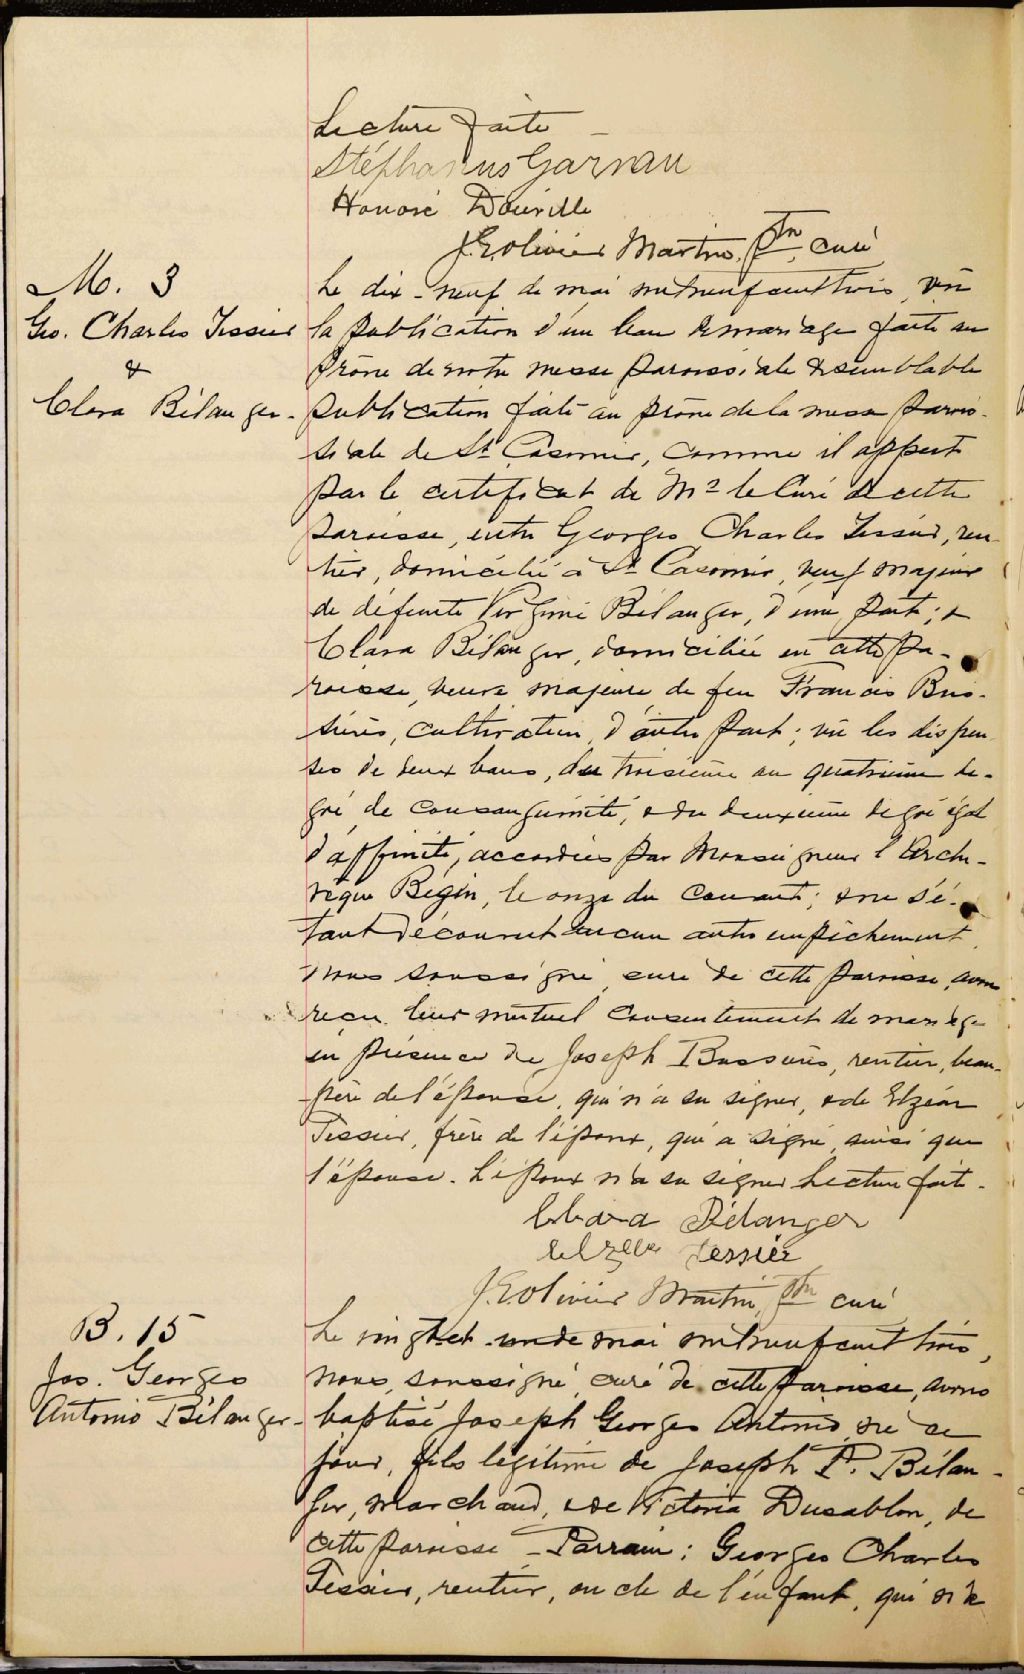 Lecture faite -
Stéphanus Garnau
Honoré Douville
J.E. Olivier Martin, Ptre, curé
M. 3
Geo. Charles Tessier
&
Clara Bélanger.
Le dix-neuf de mai mil neuf cent trois, vu
la publication d'un ban de mariage faite au
prône de notre messe paroissiale & semblable
publication faite au prône de la messe parois-
siale de St Casimir, comme il appert
par le certificat de Mr le Curé de cette
paroisse, entre Georges Charles Tessier, ren-
tier, domicilié à St Casimir, veuf majeur
de défunte Virginie Bélanger, d'une part; &
Clara Bélanger, domiciliée en cette pa-
roisse, veuve majeure de feu Francis Bus-
sières, cultivateur, d'autre part; vu les dispen-
ses de deux bans, du troisième au quatrième de-
gré de consanguinité, & du deuxième degré égal
d'affinité, accordées par Monseigneur l'Arche-
vêque Bégin, le onze du courant; & ne s'é-
tant découvert aucun autre empêchement,
nous soussigné, curé de cette paroisse, avons
reçu leur mutuel consentement de mariage
en présence de Joseph Bussières, rentier, beau-
père de l'épouse, qui n'a su signer, & de Elzéar
Tessier, frère de l'époux, qui a signé, ainsi que
l'épouse. L'époux n'a su signer. Lecture faite.
Clara Bélanger
Tessier
J.E. Olivier Martin, Ptre curé
B. 15
Jos. Georges
Antonio Bélanger.
Le vingt et un de mai mil neuf cent trois,
nous, soussigné, curé de cette paroisse, avons
baptisé Joseph Georges Antonio, né ce
jour, fils légitime de Joseph P. Bélan-
ger, marchand, & de Victoria Dusablon, de
cette paroisse - Parrain: Georges Charles
Tessier, rentier, oncle de l'enfant, qui n'a